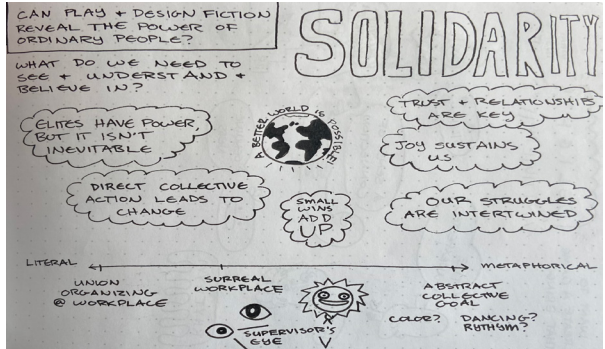 CAN PLAY + DESIGN FICTION
REVEAL THE POWER OF
ORDINARY PEOPLE?
SOLIDARITY
WHAT DO WE NEED TO
SEE + UNDERSTAND +
BELIEVE IN?
ELITES HAVE POWER,
BUT IT ISN'T
INEVITABLE
A BETTER WORLD IS POSSIBLE!
TRUST + RELATIONSHIPS
ARE KEY
JOY SUSTAINS
US
DIRECT COLLECTIVE
ACTION LEADS TO
CHANGE
SMALL
WINS
ADD
UP
OUR STRUGGLES
ARE INTERTWINED
LITERAL
METAPHORICAL
UNION
ORGANIZING
@ WORKPLACE
SURREAL
WORKPLACE
SUPERVISOR'S
EYE
ABSTRACT
COLLECTIVE
GOAL
COLOR?
DANCING?
RYTHYM?